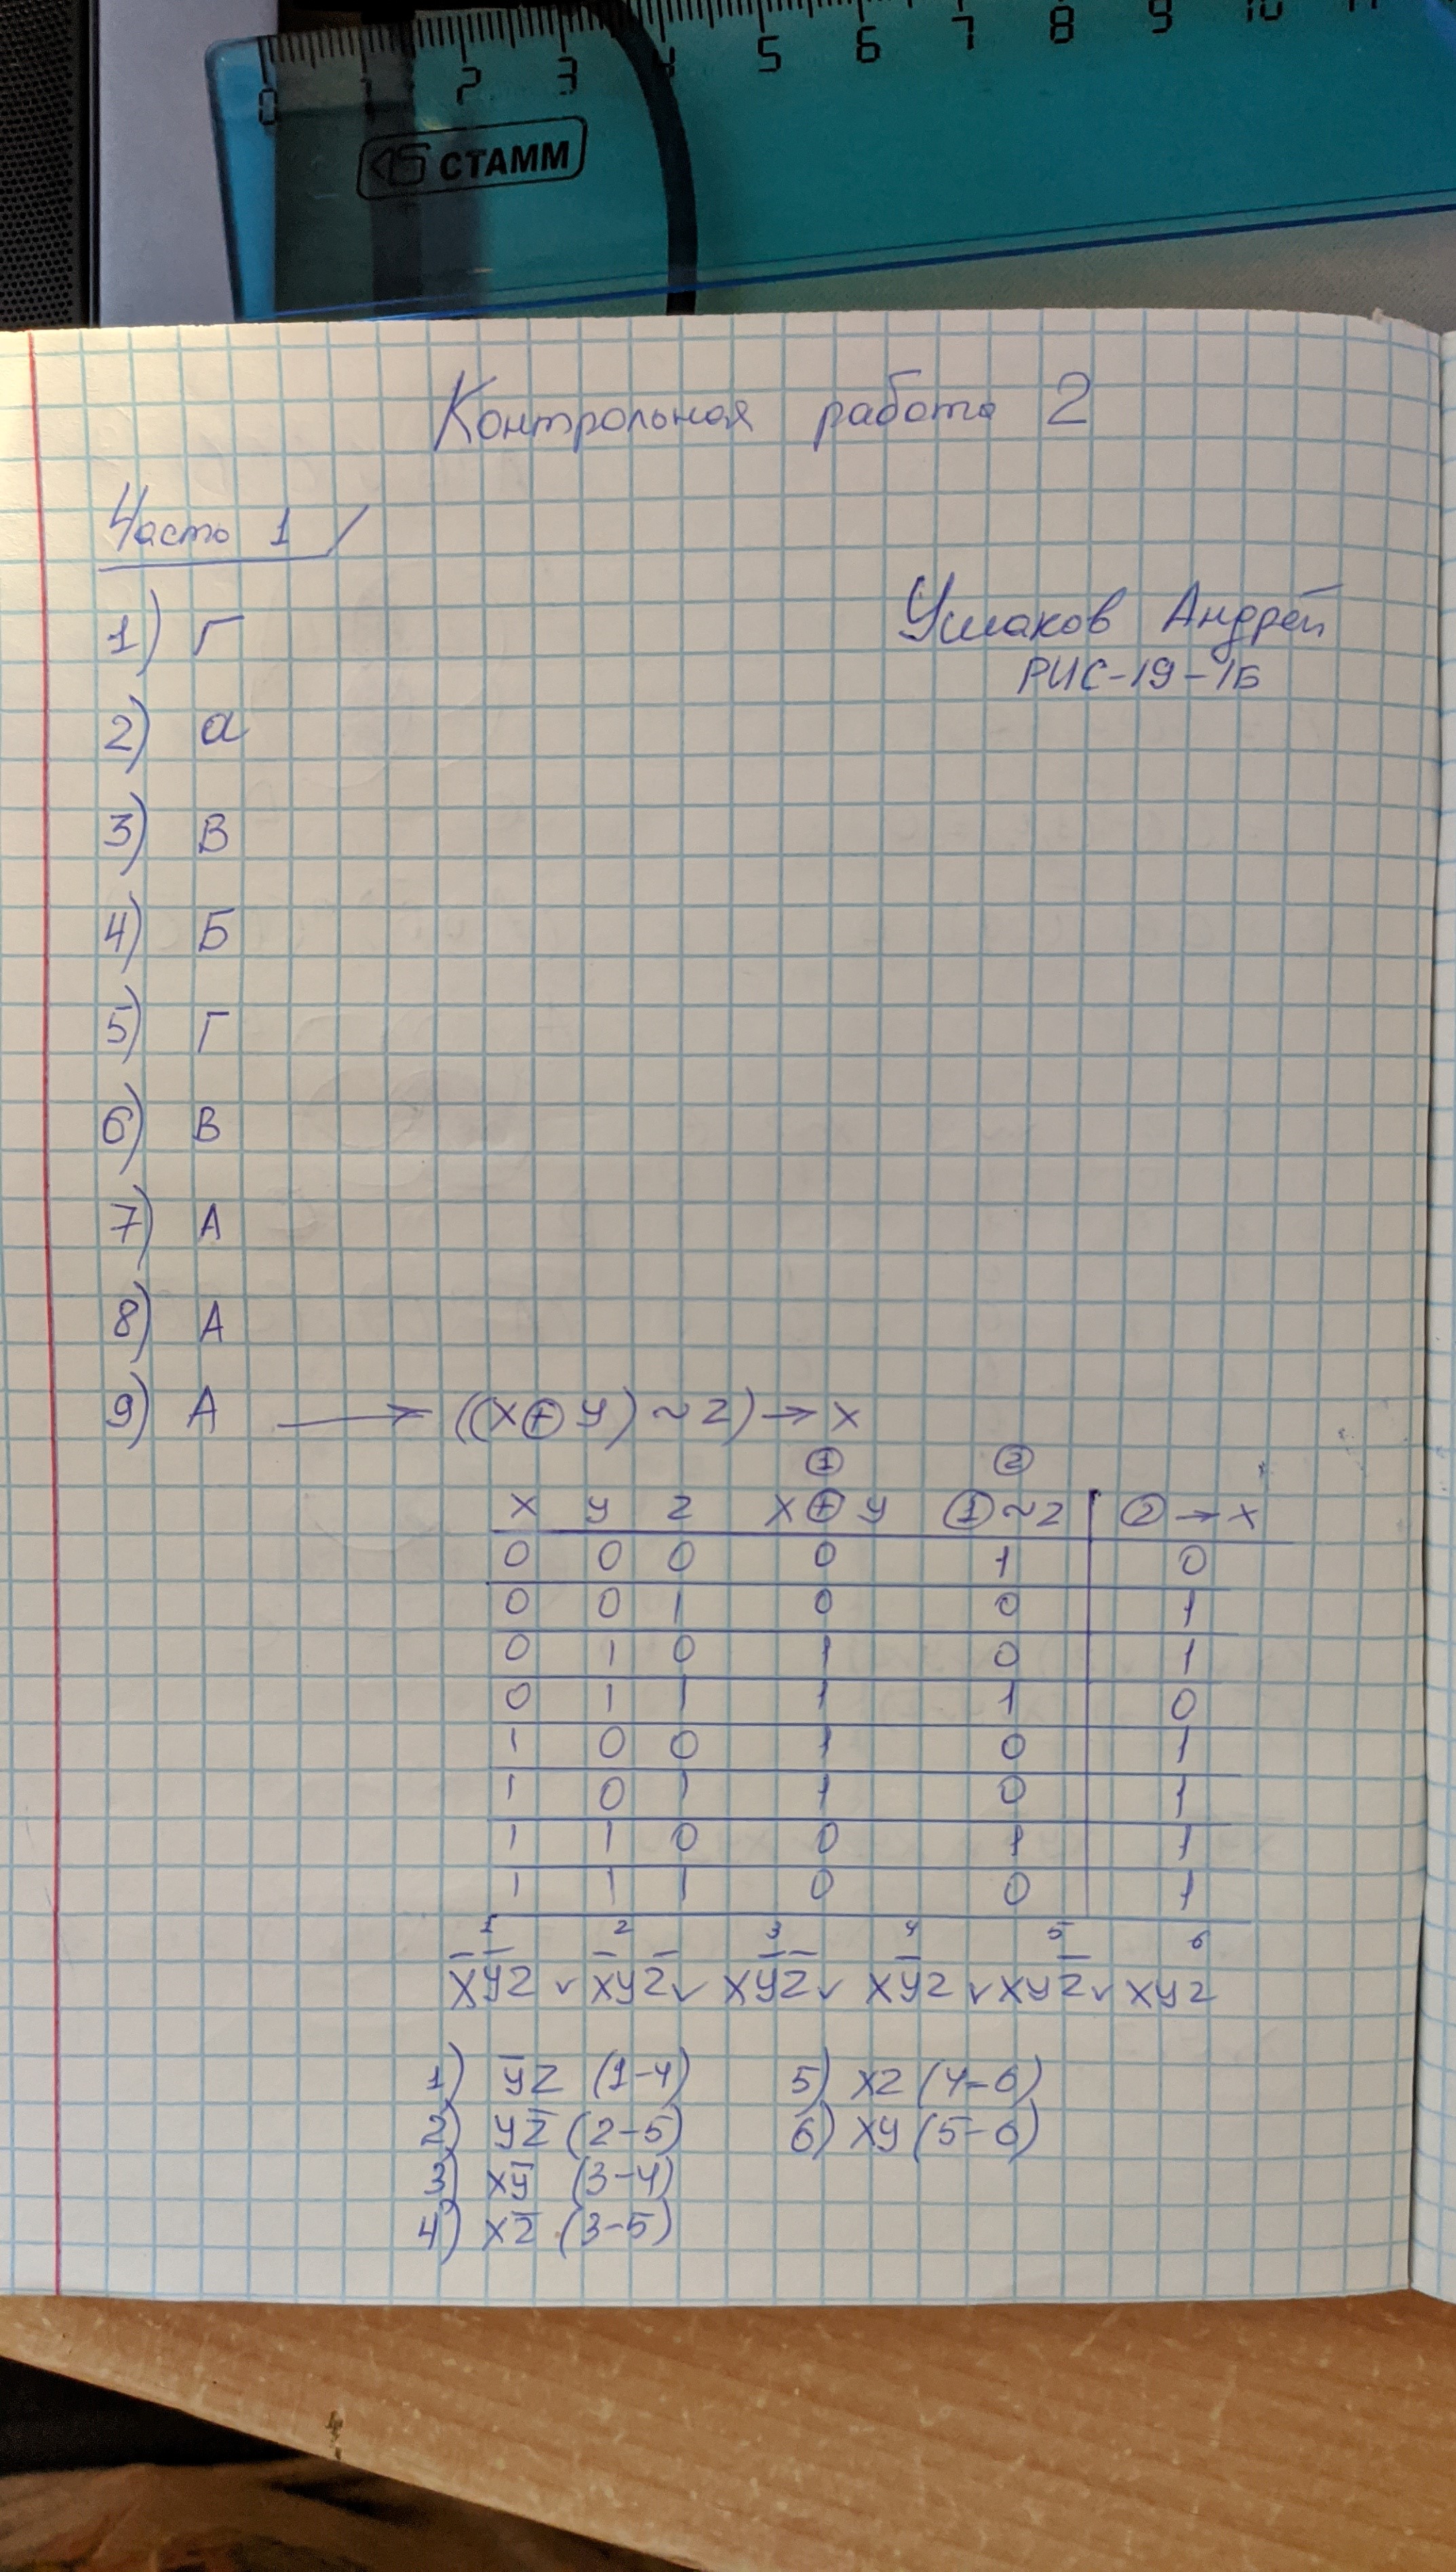 0 1 2 3 4 5 6 7 8 9 10
СТАММ
Контрольная работа 2
Часть 1
Ушаков Андрей
РИС-19-1Б
1) Г
2) а
3) В
4) Б
5) Г
6) В
7) А
8) А
9) А → ((x ⊕ y) ~ z) → x
① ②
x y z x ⊕ y ① ~ z ② → x
0 0 0 0 1 0
0 0 1 0 0 1
0 1 0 1 0 1
0 1 1 1 1 0
1 0 0 1 0 1
1 0 1 1 0 1
1 1 0 0 1 1
1 1 1 0 0 1
1 2 3 4 5 6
x̅y̅z ∨ x̅yz̅ ∨ xy̅z̅ ∨ xy̅z ∨ xyz̅ ∨ xyz
1) y̅z (1-4) 5) xz (4-6)
2) yz̅ (2-5) 6) xy (5-6)
3) xy̅ (3-4)
4) xz̅ (3-5)